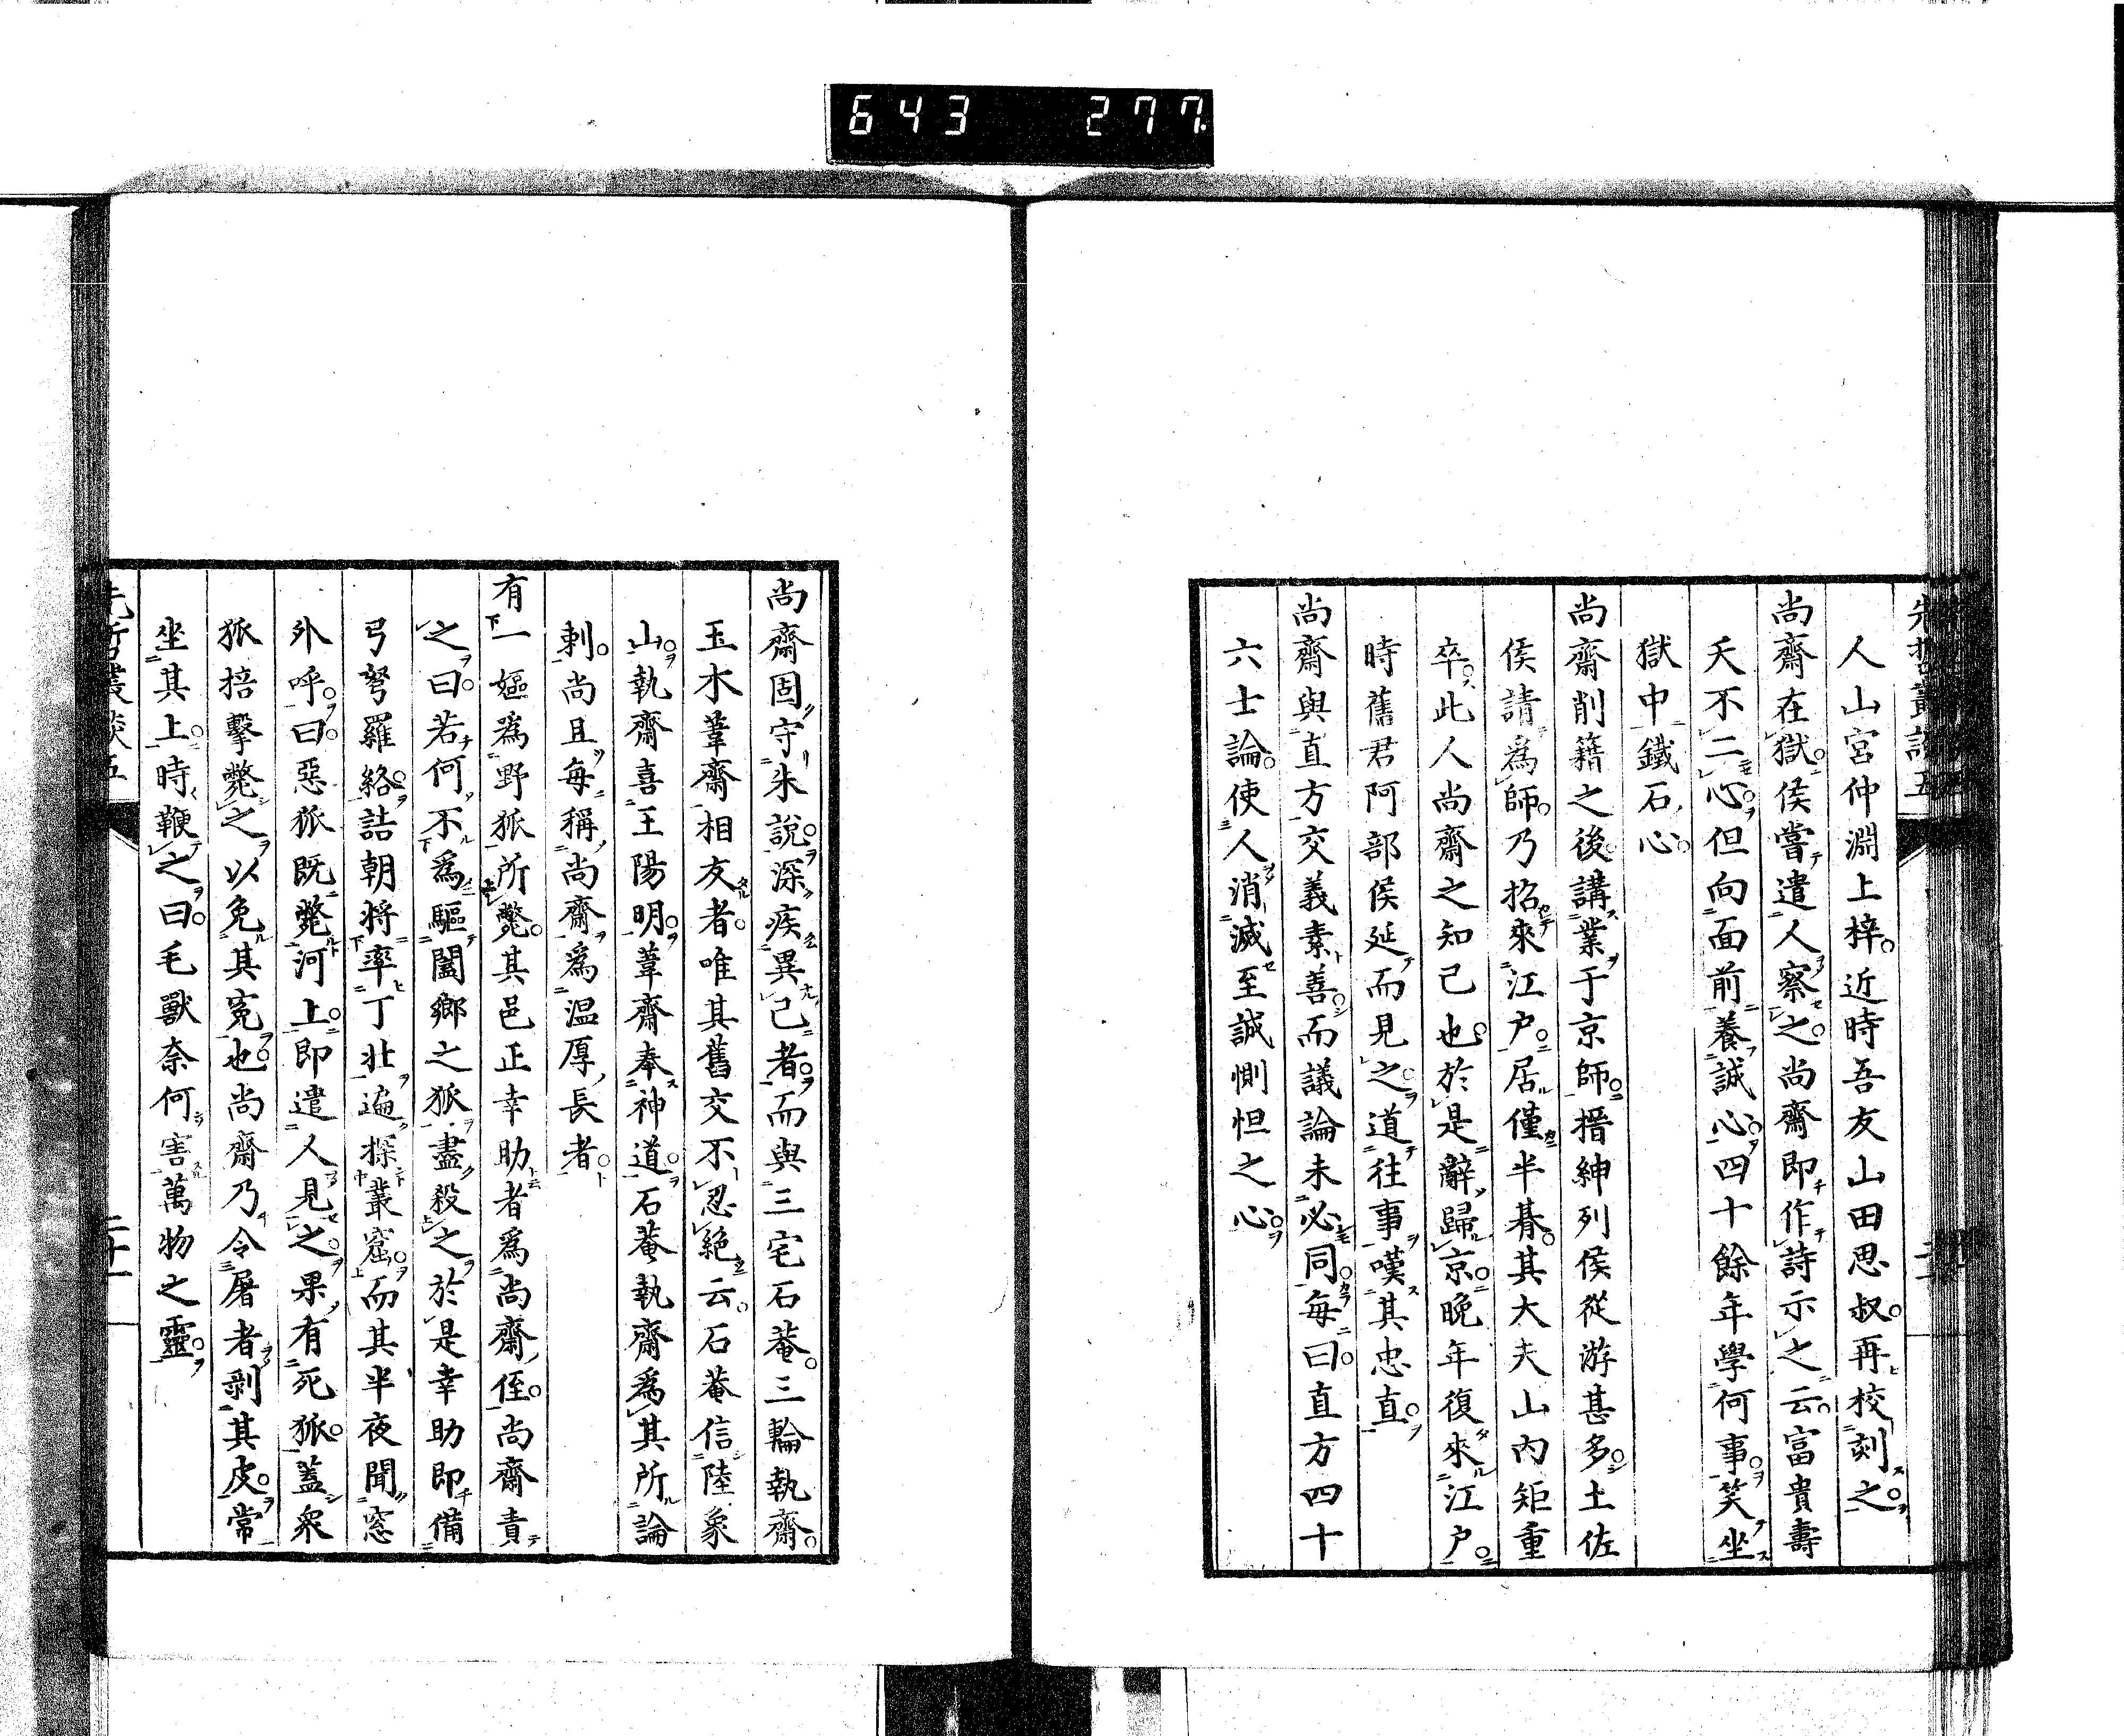 643 277
先哲叢談五
人山宮仲淵上梓。近時吾友山田思叔。再校刻之。
尚齋在獄。侯嘗遣人察之。尚齋即作詩示之云。富貴壽
夭不二心。但向面前養誠心。四十餘年學何事。笑坐
獄中鐵石心。
尚齋削籍之後。講業于京師。搢紳列侯從游甚多。土佐
侯請爲師。乃招來江戶。居僅半朞。其大夫山內矩重
卒。此人尚齋之知己也。於是辭歸京。晚年復來江戶。
時舊君阿部侯延而見之。道往事嘆其忠直。
尚齋與直方交義素善。而議論未必同。每曰。直方四十
六士論。使人消滅至誠惻怛之心。
尚齋固守朱說。深疾異己者。而與三宅石菴。三輪執齋。
玉木葦齋相友者。唯其舊交不忍絕云。石菴信陸象
山。執齋喜王陽明。葦齋奉神道。石菴執齋爲其所論
刺。尚且每稱尚齋爲温厚長者。
有一嫗爲野狐所斃。其邑正幸助者爲尚齋姪。尚齋責
之曰。若何不爲驅闔鄉之狐盡殺之。於是幸助即備
弓弩羅絡。詰朝將率丁壯遍探叢窟。而其半夜聞窓
外呼曰。惡狐既斃河上。即遣人見之。果有死狐。蓋衆
狐掊擊斃之以免其寃也。尚齋乃令屠者剝其皮。常
坐其上。時鞭之曰。毛獸奈何害萬物之靈。
先哲叢談五
二十一